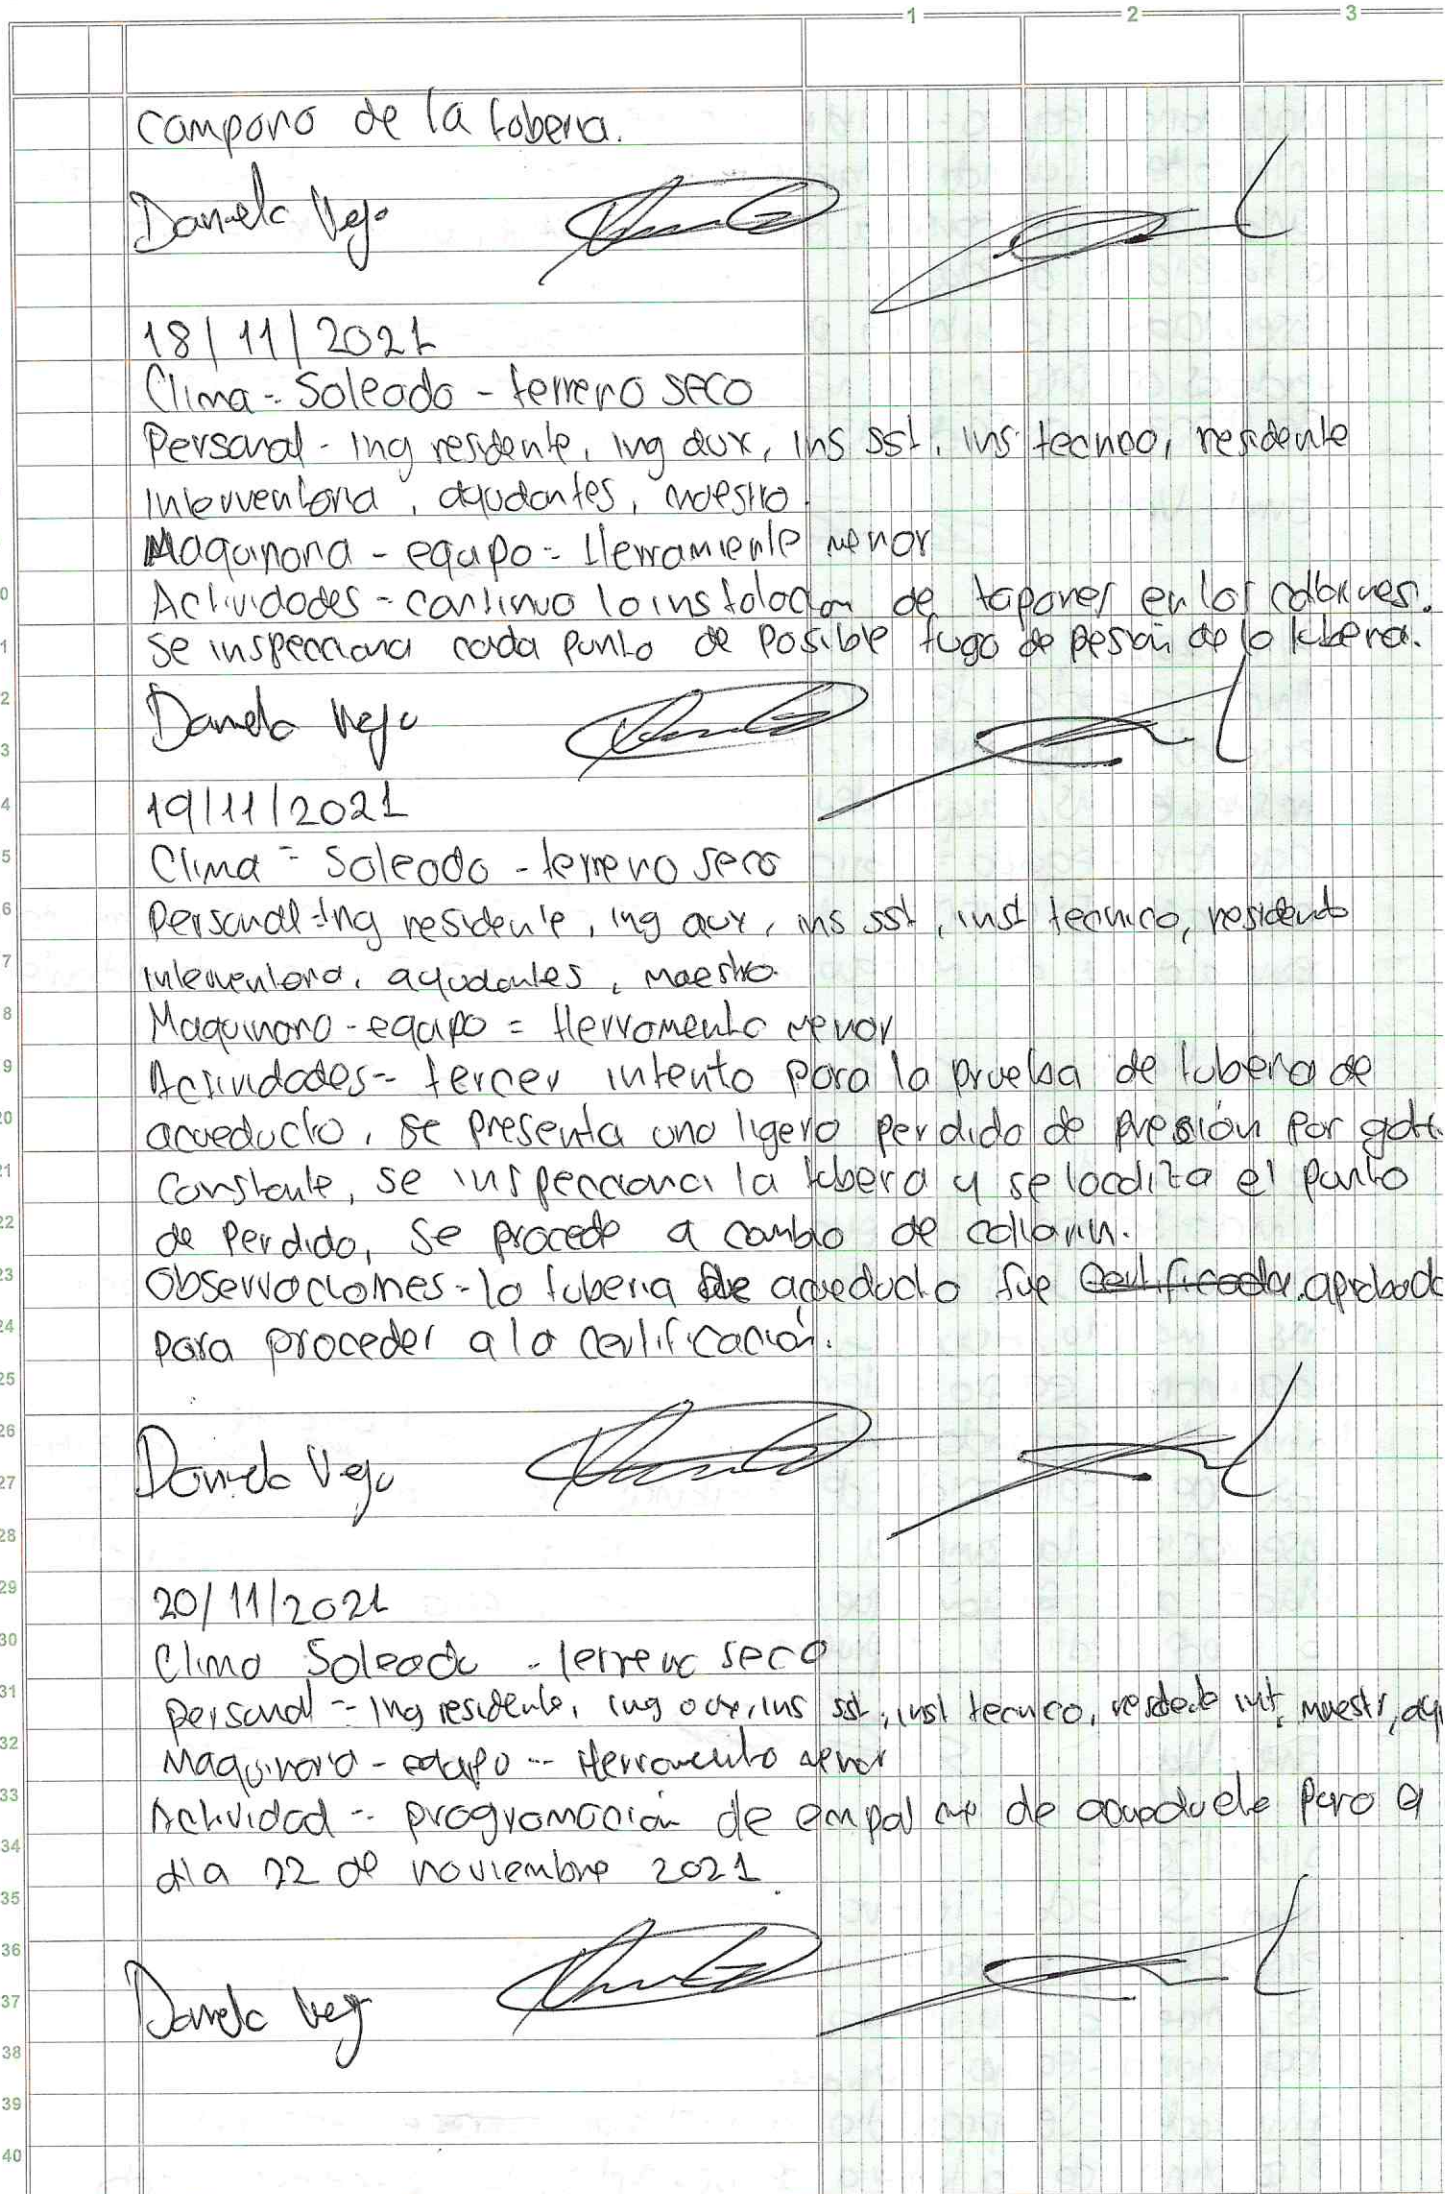 1 2 3
campana de la tuberia.
Daniela Vega
18/11/2021
Clima - Soleado - terreno seco
Personal - Ing residente, ing aux, ins sst, ins tecnico, residente
Interventoria, ayudantes, maestro.
Maquinaria - equipo - Herramienta menor
Actividades - continuo la instalacion de tapones en los collarines.
se inspecciona cada punto de posible fuga de presión de la tuberia.
Daniela Vega
19/11/2021
Clima = Soleado - terreno seco
Personal = Ing residente, ing aux, ins sst, inst tecnico, residente
interventora, ayudantes, maestro.
Maquinaria - equipo = Herramienta menor
Actividades - tercer intento para la prueba de tuberia de
acueducto, se presenta una ligera perdida de presión por
constante, se inspecciona la tuberia y se localiza el punto
de perdida, se procede a cambio de collarin.
Observaciones - la tuberia de acueducto fue certificada. aprobada
para proceder a la certificación.
Daniela Vega
20/11/2021
Clima Soleado - terreno seco
personal - Ing residente, ing aux, ins sst, inst tecnico, residente int, maestr, ay
Maquinaria - equipo - Herramienta menor
Actividad - programación de empalme de acueducto para el
dia 22 de noviembre 2021.
Daniela Vega